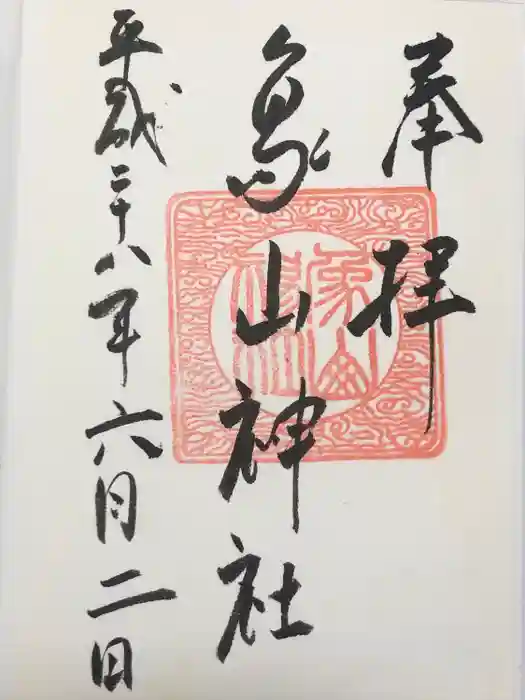 奉拝
象山神社
平成二十八年六月二日
象山神社